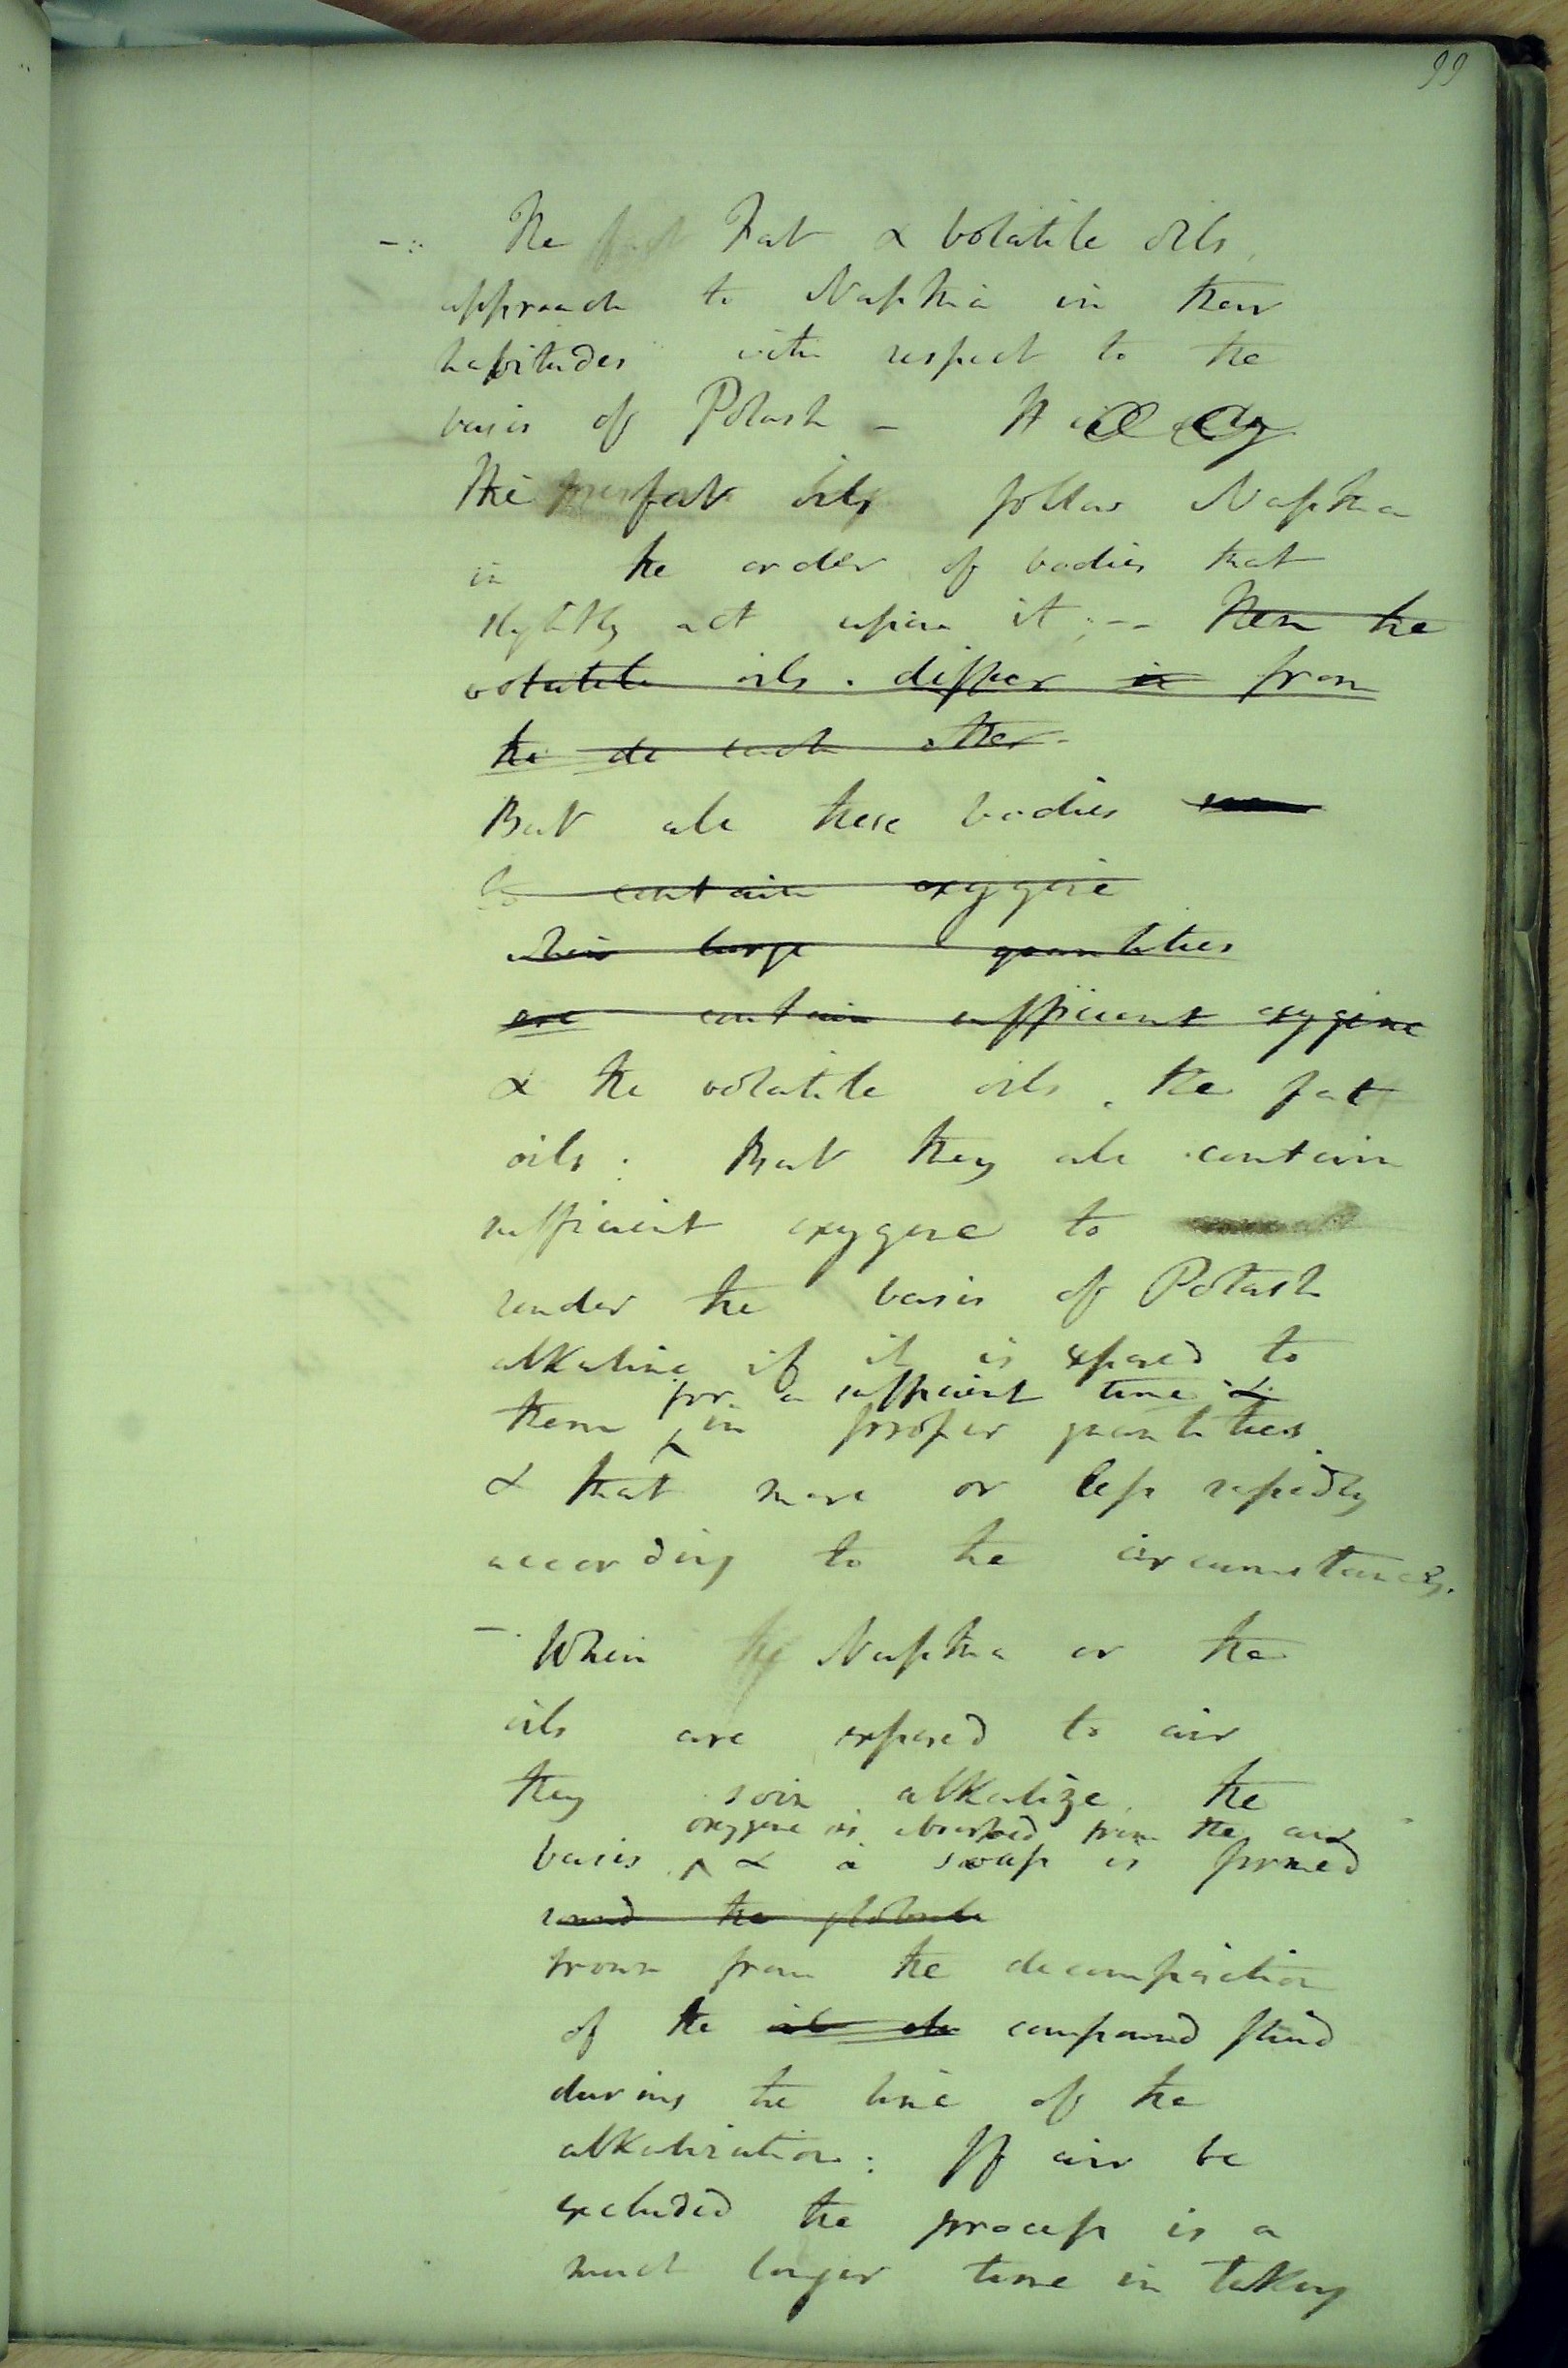 99
-: The Fat & volatile oils,
approach to Naptha in their
habitudes with respect to the
basis of Potash -
The fat oils follow Naptha
in the order of bodies that
slightly act upon it; -- Then the
volatile oils. differ in from
the de each other.
But all these bodies
contain oxygene
their large quantities
are contain sufficient oxygene
& the volatile oils, the fat
oils: But they all contain
sufficient oxygene to
render the basis of Potash
alkaline if it is exposed to
for a sufficient time &
them ^ in proper quantities
& that more or less rapidly
according to the circumstances.
-. When Naptha or the
oils are exposed to air
they soon alkalize the
oxygene is absorbed from the air
basis ^ & a soap is formed
round the globule
from the decomposition
of the compound fluid
during the time of the
alkalization: If air be
excluded the process is a
much longer time in taking